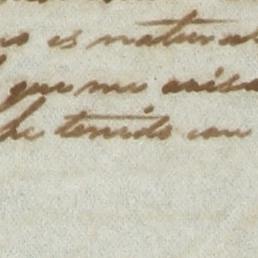 es natural
que me avisa
he tenido con